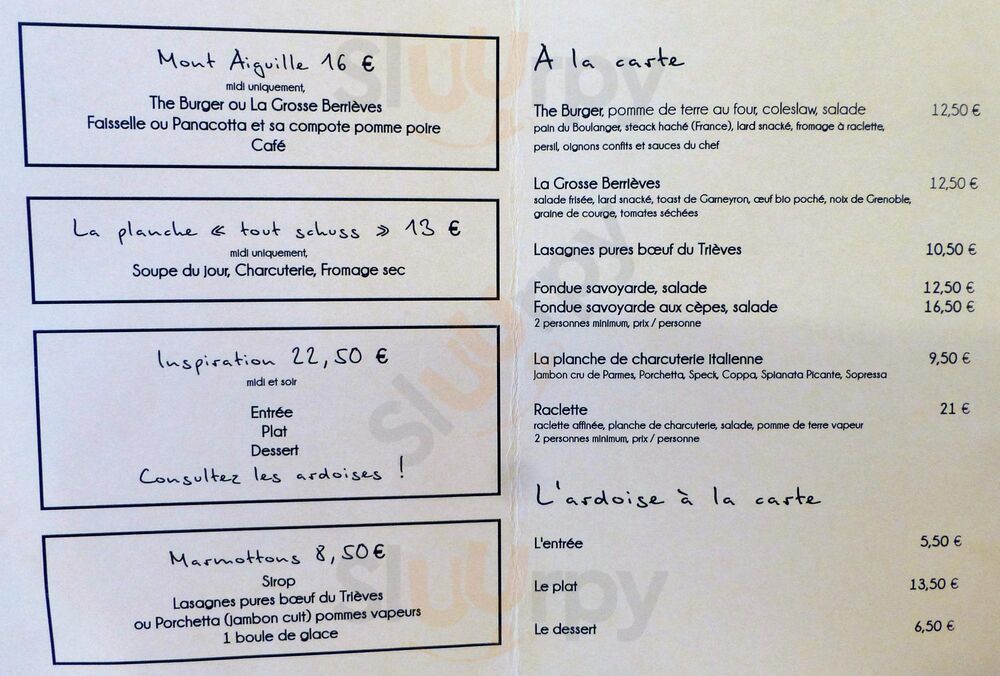 Mont Aiguille 16 €
midi uniquement,
The Burger ou La Grosse Berrièves
Faisselle ou Panacotta et sa compote pomme poire
Café
La planche « tout schuss » 13 €
midi uniquement,
Soupe du jour, Charcuterie, Fromage sec
Inspiration 22,50 €
midi et soir
Entrée
Plat
Dessert
Consultez les ardoises !
Marmottons 8,50 €
Sirop
Lasagnes pures bœuf du Trièves
ou Porchetta (jambon cuit) pommes vapeurs
1 boule de glace
À la carte
The Burger, pomme de terre au four, coleslaw, salade 12,50 €
pain du Boulanger, steack haché (France), lard snacké, fromage à raclette,
persil, oignons confits et sauces du chef
La Grosse Berrièves 12,50 €
salade frisée, lard snacké, toast de Garneyron, œuf bio poché, noix de Grenoble,
graine de courge, tomates séchées
Lasagnes pures bœuf du Trièves 10,50 €
Fondue savoyarde, salade 12,50 €
Fondue savoyarde aux cèpes, salade 16,50 €
2 personnes minimum, prix / personne
La planche de charcuterie italienne 9,50 €
Jambon cru de Parmes, Porchetta, Speck, Coppa, Spianata Picante, Sopressa
Raclette 21 €
raclette affinée, planche de charcuterie, salade, pomme de terre vapeur
2 personnes minimum, prix / personne
L'ardoise à la carte
L'entrée 5,50 €
Le plat 13,50 €
Le dessert 6,50 €
sluurpy
sluurpy
sluurpy